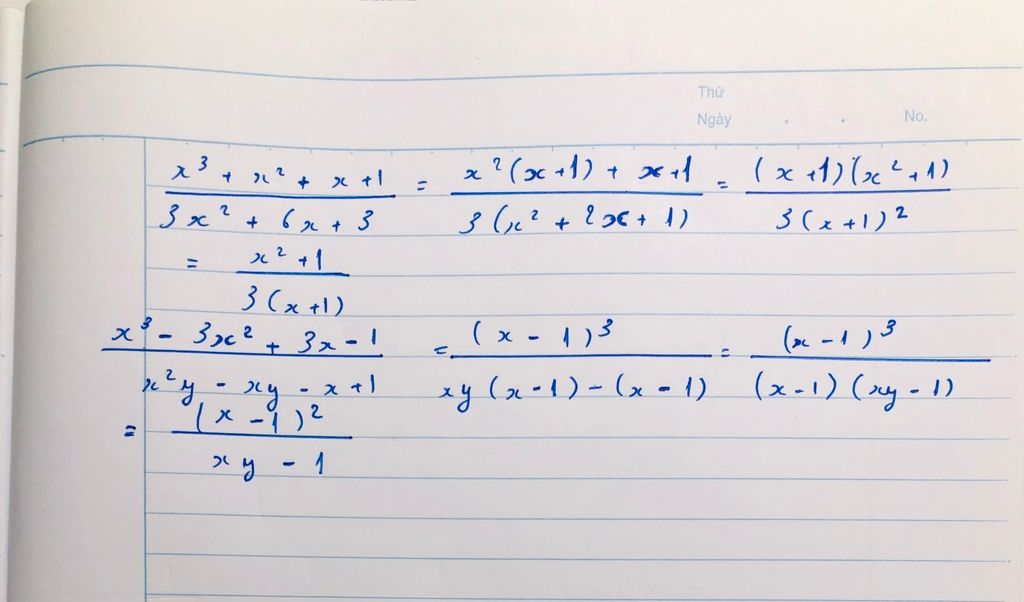 Thứ
Ngày . . No.
x³ + x² + x + 1 / 3x² + 6x + 3 = x²(x+1) + x+1 / 3(x² + 2x + 1) = (x+1)(x²+1) / 3(x+1)²
= x²+1 / 3(x+1)
x³ - 3x² + 3x - 1 / x²y - xy - x + 1 = (x-1)³ / xy(x-1) - (x-1) = (x-1)³ / (x-1)(xy-1)
= (x-1)² / xy - 1